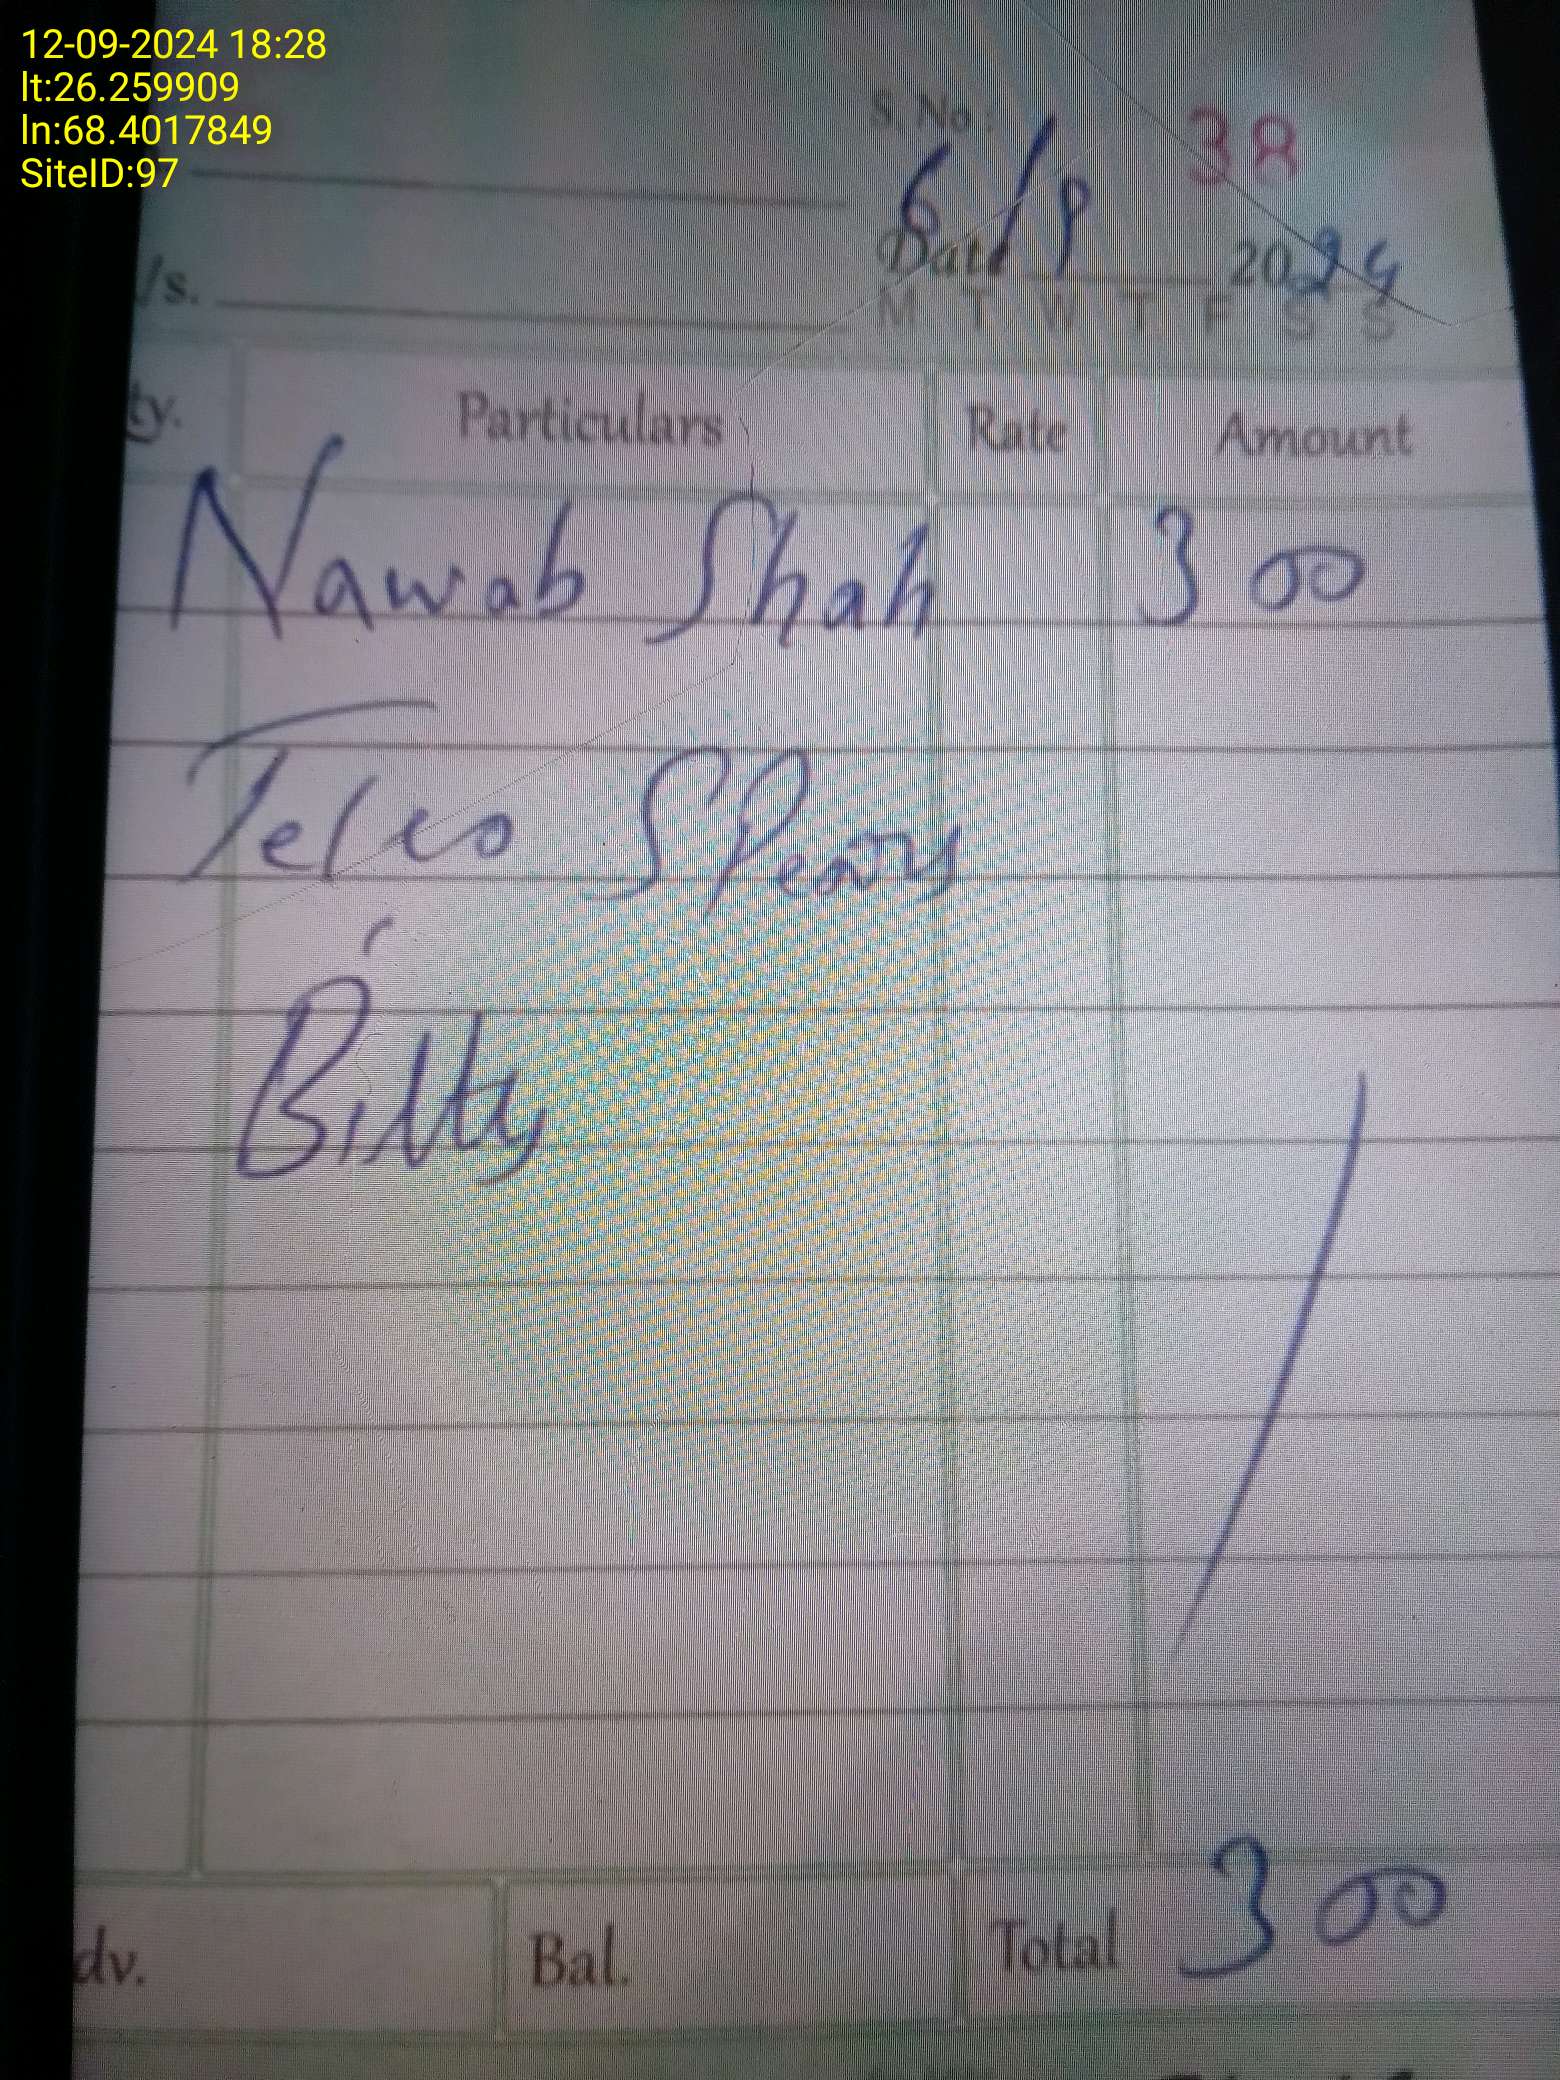 12-09-2024 18:28
lt:26.259909
ln:68.4017849
SiteID:97
S.No: 38
/s.
Date 6/9 2024
M T W T F S S
ty. Particulars Rate Amount
Nawab Shah 300
Telco
Bilty
dv. Bal. Total 300